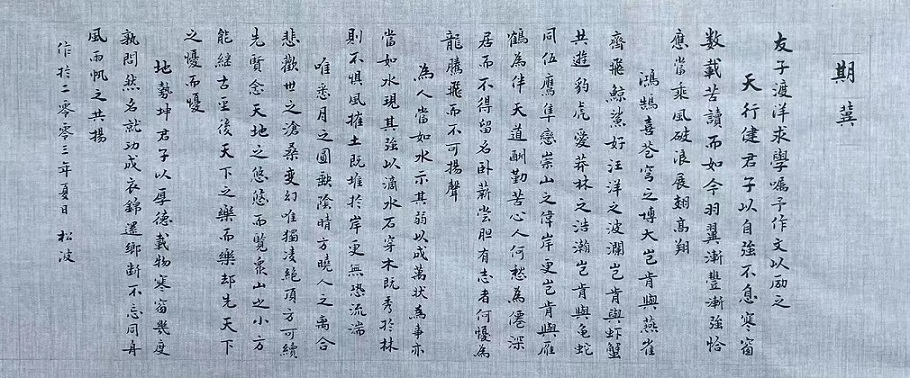 期冀
友子渡洋求學囑予作文以励之
天行健君子以自強不息寒窗
数載苦讀而如今羽翼漸豐漸強恰
應當乘風破浪展翅高翔
鴻鵠喜苍穹之博大岂肯與燕雀
齊飛鲸鯊好汪洋之波瀾岂肯與虾蟹
共遊豹虎愛莽林之浩瀚岂肯與龟蛇
同伍鷹隼戀崇山之偉岸更岂肯與雁
鶴為伴天道酬勤苦心人何愁為僊深
居而不得留名卧薪尝胆有志者何憂為
龍騰飛而不可揚聲
為人當如水示其弱以成萬状為事亦
當如水現其強以滴水石穿木既秀於林
則不惧風摧土既堆於岸更無恐流湍
唯悉月之圓缺陰晴方曉人之离合
悲歡世之滄桑变幻唯獨凌绝頂方可續
先賢念天地之悠悠而覧衆山之小方
能继古圣後天下之樂而樂却先天下
之憂而憂
地勢坤君子以厚德載物寒窗幾度
孰問然名就功成衣錦還鄉断不忘同舟
風雨帆之共揚
作於二零零三年夏日 松波